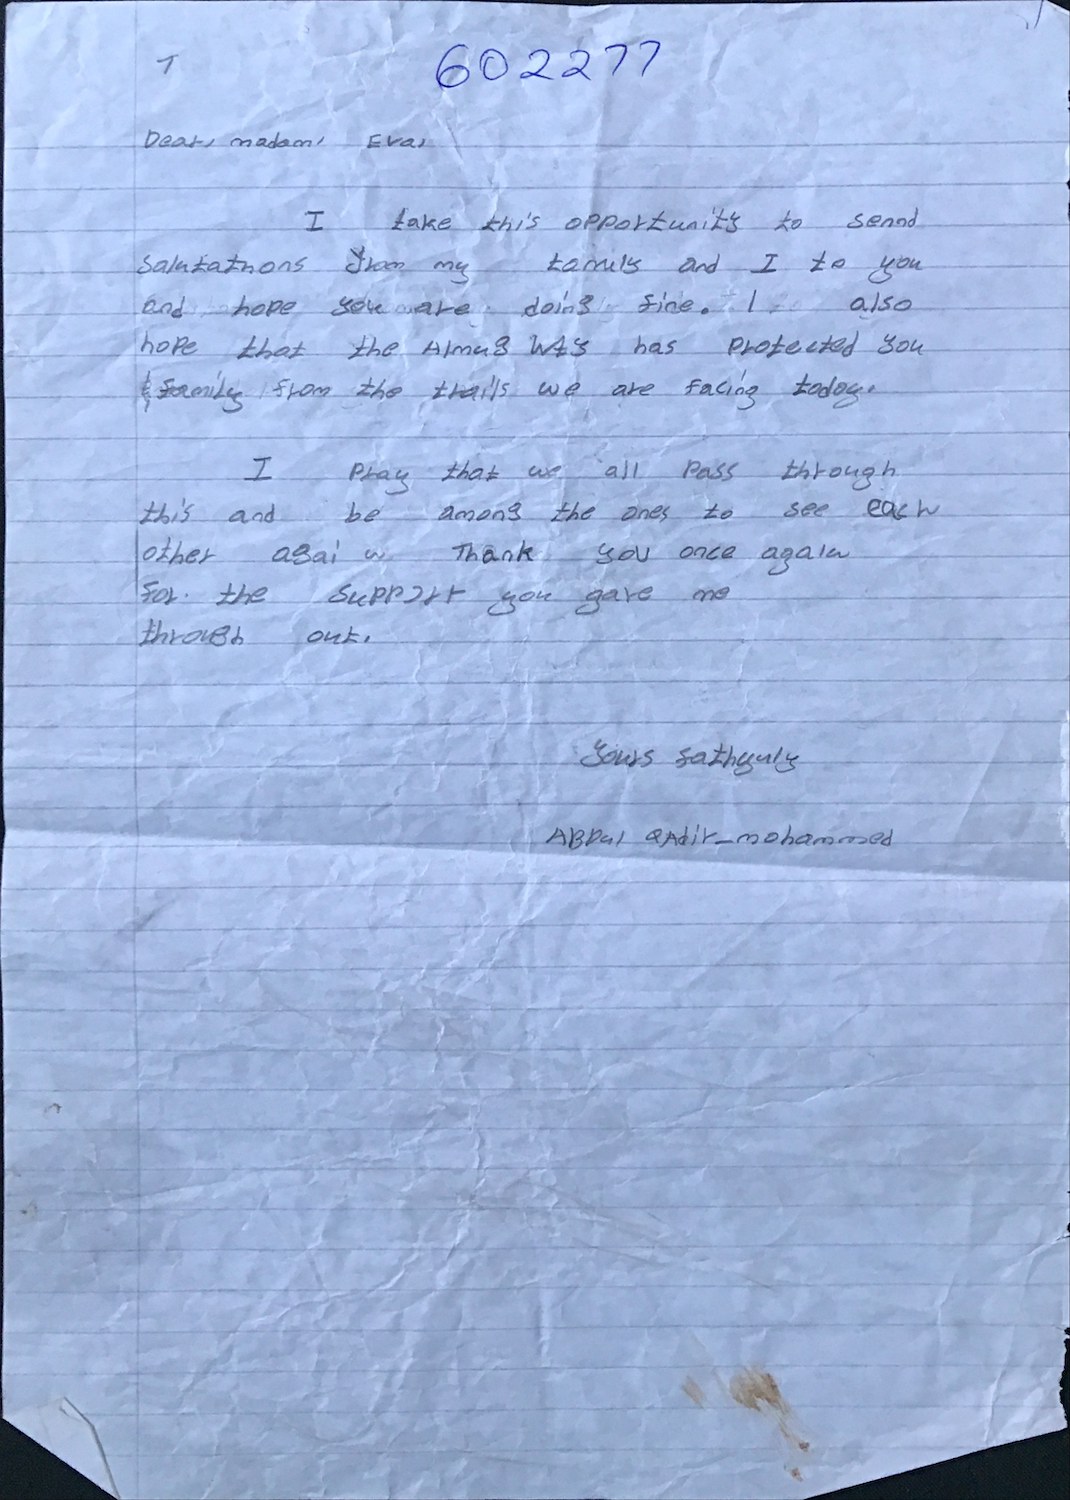 602277
Dear, madam, Eva,
I take this opportunity to sennd
salutatnons from my family and I to you
and hope you are doing fine. I also
hope that the Almug Wty has protected you
& family from the trails we are facing today.
I pray that we all pass through
this and be among the ones to see each
other agai n. Thank you once again
for. the support you gave me
through out.
Yours fathyuly
ABDul QAdir_mohammed